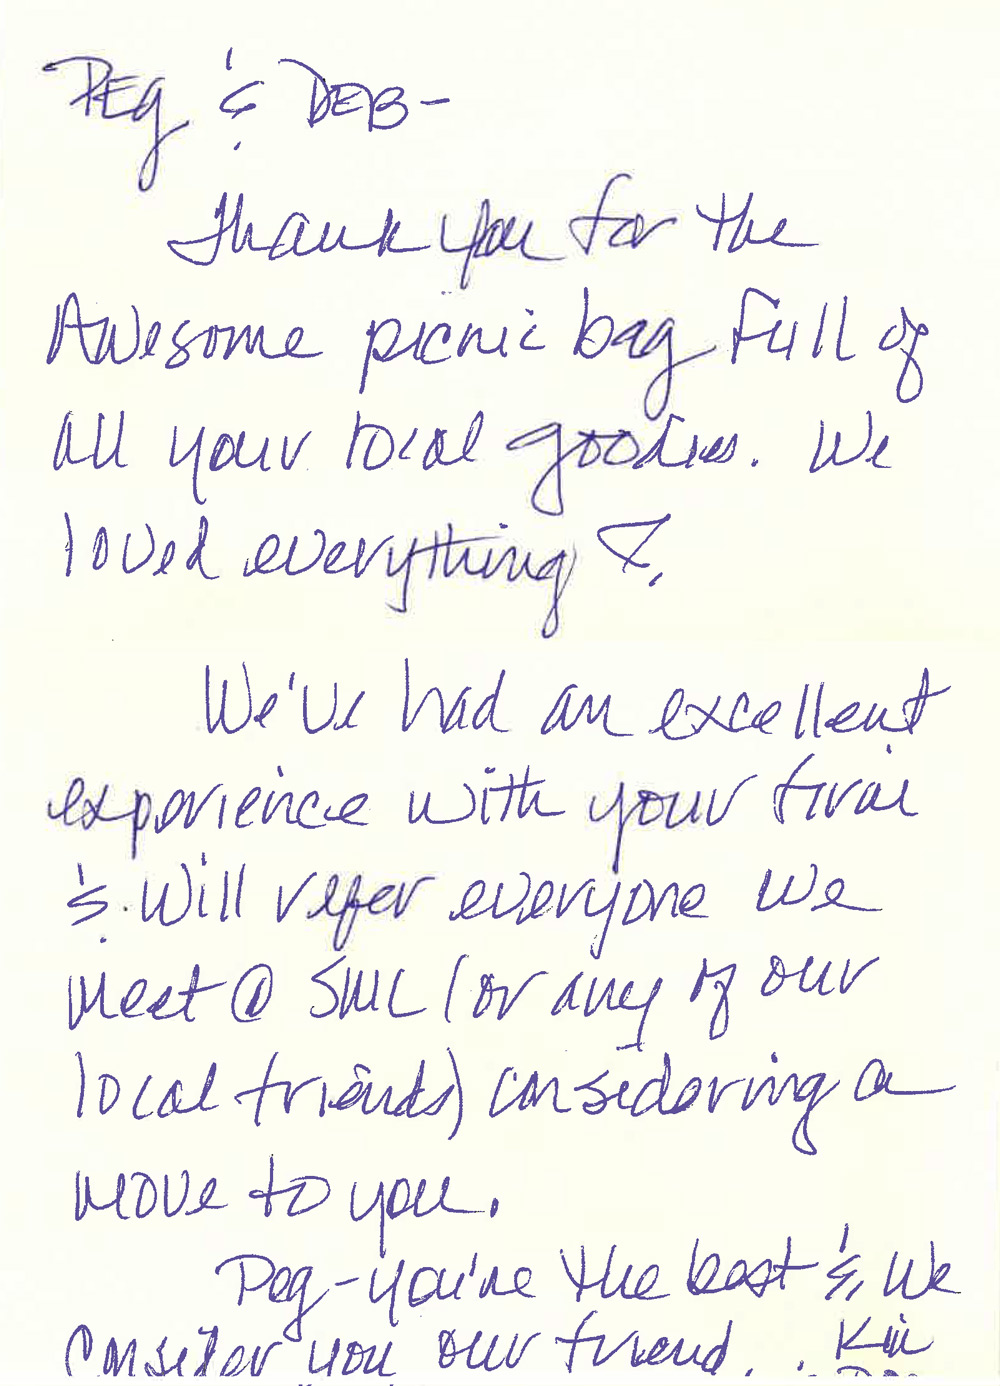 PEg & DEB-
Thank you for the
Awesome picnic bag full of
all your local goodies. We
loved everything
We've had an excellent
experience with your firm
& will refer everyone we
meet @ SML (or any of our
local friends) considering a
move to you.
Peg-you're the best & we
consider you our friend.